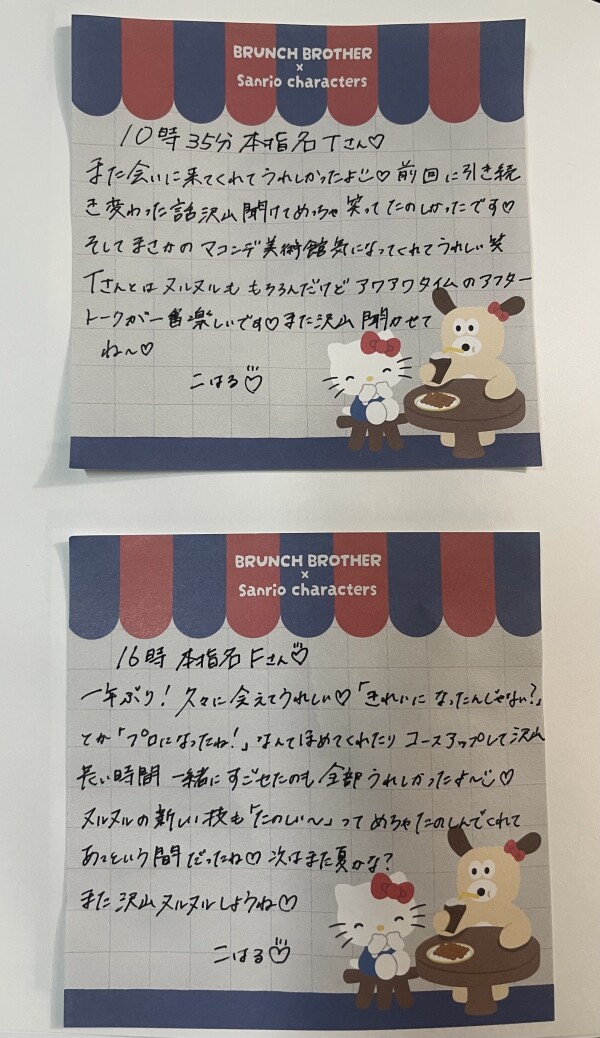 BRUNCH BROTHER
×
Sanrio characters
10時35分 本指名Tさん♡
また会いに来てくれてうれしかったよ♡ 前回に引き続
き変わった話沢山聞けてめっちゃ笑ってたのしかったです♡
そしてまさかのマコンデ美術館気になってくれてうれしい笑
Tさんとはヌルヌルももちろんだけどアワアワタイムのアフター
トークが一番楽しいです♡また沢山聞かせて
ね〜♡
こはる♡
BRUNCH BROTHER
×
Sanrio characters
16時 本指名Fさん♡
一年ぶり！久々に会えてうれしい♡「きれいになったんじゃない？」
とか「プロになったね！」なんてほめてくれたりコースアップして沢山
長い時間一緒にすごせたのも全部うれしかったよ〜♡
ヌルヌルの新しい技も「たのしい〜」ってめちゃたのしんでくれて
あっという間だったね♡ 次はまた夏かな？
また沢山ヌルヌルしようね♡
こはる♡